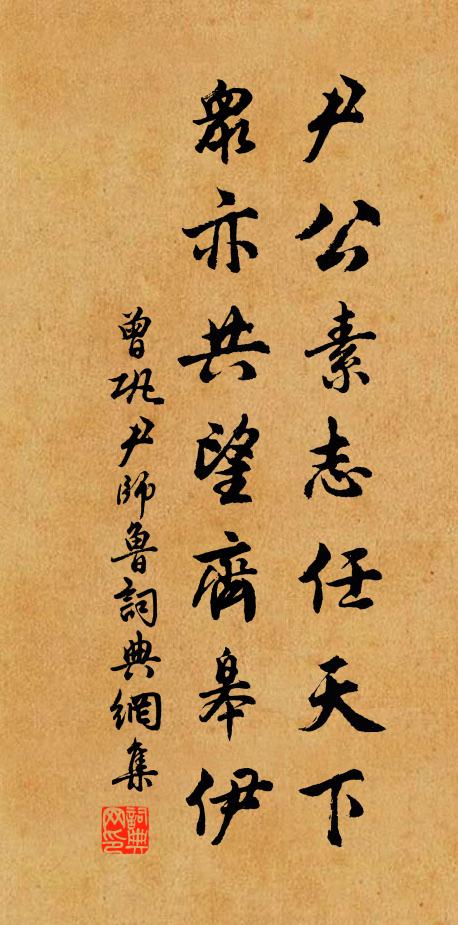 尹公素志任天下
眾亦共望齊皋伊
曾巩尹師魯詞典網集
詞典网印